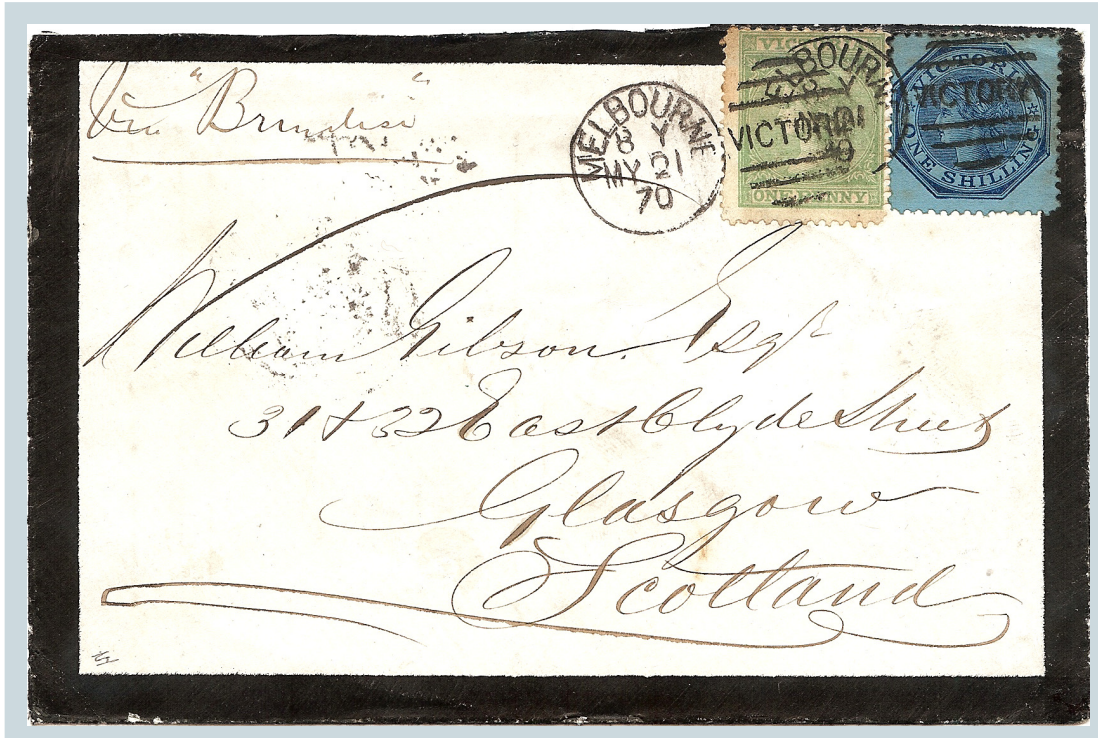 Via "Brindisi"
MELBOURNE
8 Y
MY 21
70
VICTORIA
ONE PENNY
VICTORIA
ONE SHILLING
William Gibson Esqr
31 & 32 East Clyde Street
Glasgow
Scotland